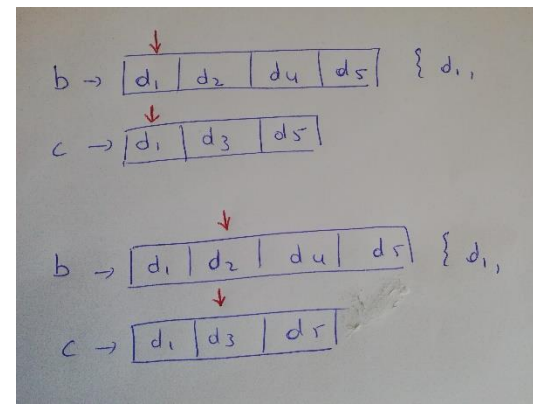 b → | d₁ | d₂ | d₄ | d₅ | { d₁,
c → | d₁ | d₃ | d₅ |
b → | d₁ | d₂ | d₄ | d₅ | { d₁,
c → | d₁ | d₃ | d₅ |